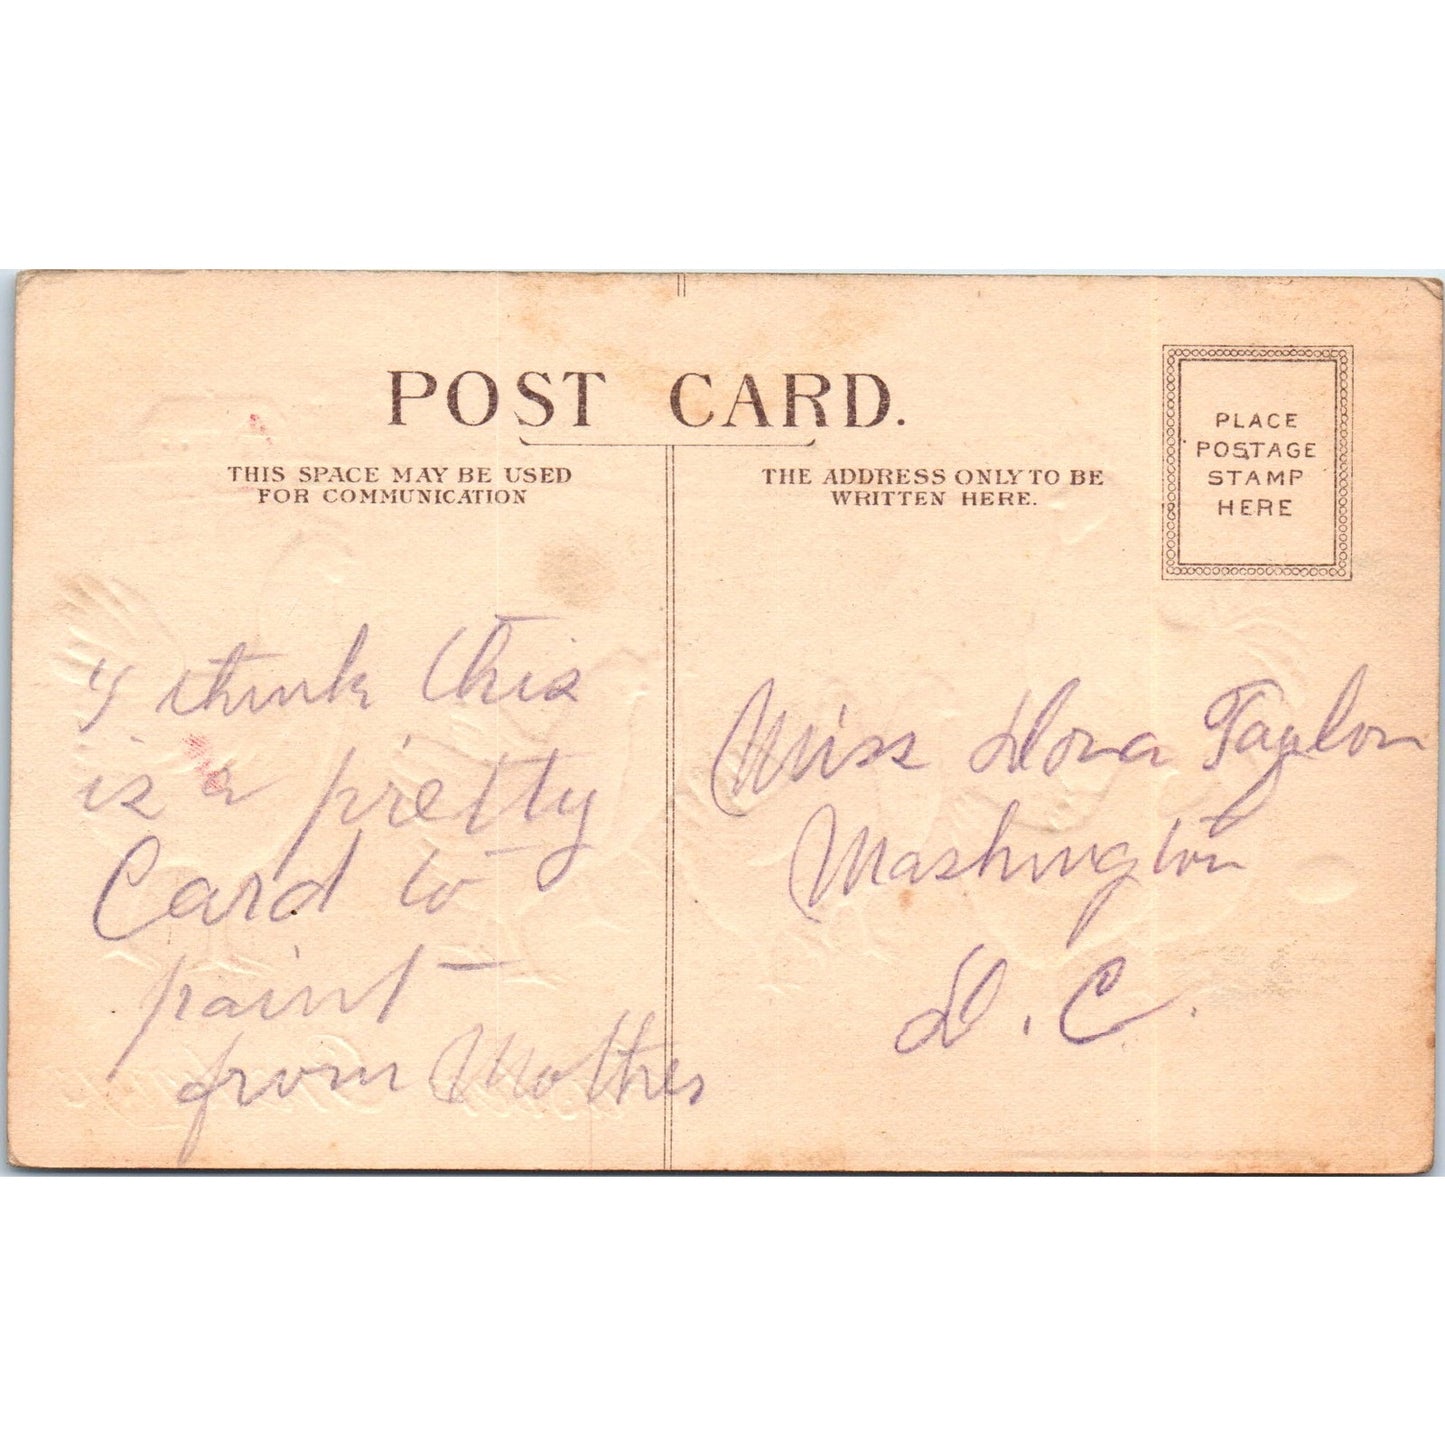 POST CARD.
THIS SPACE MAY BE USED
FOR COMMUNICATION
THE ADDRESS ONLY TO BE
WRITTEN HERE.
PLACE
POSTAGE
STAMP
HERE
I think this
is a pretty
Card to
paint
from Mother
Miss Taylor
Washington
D. C.